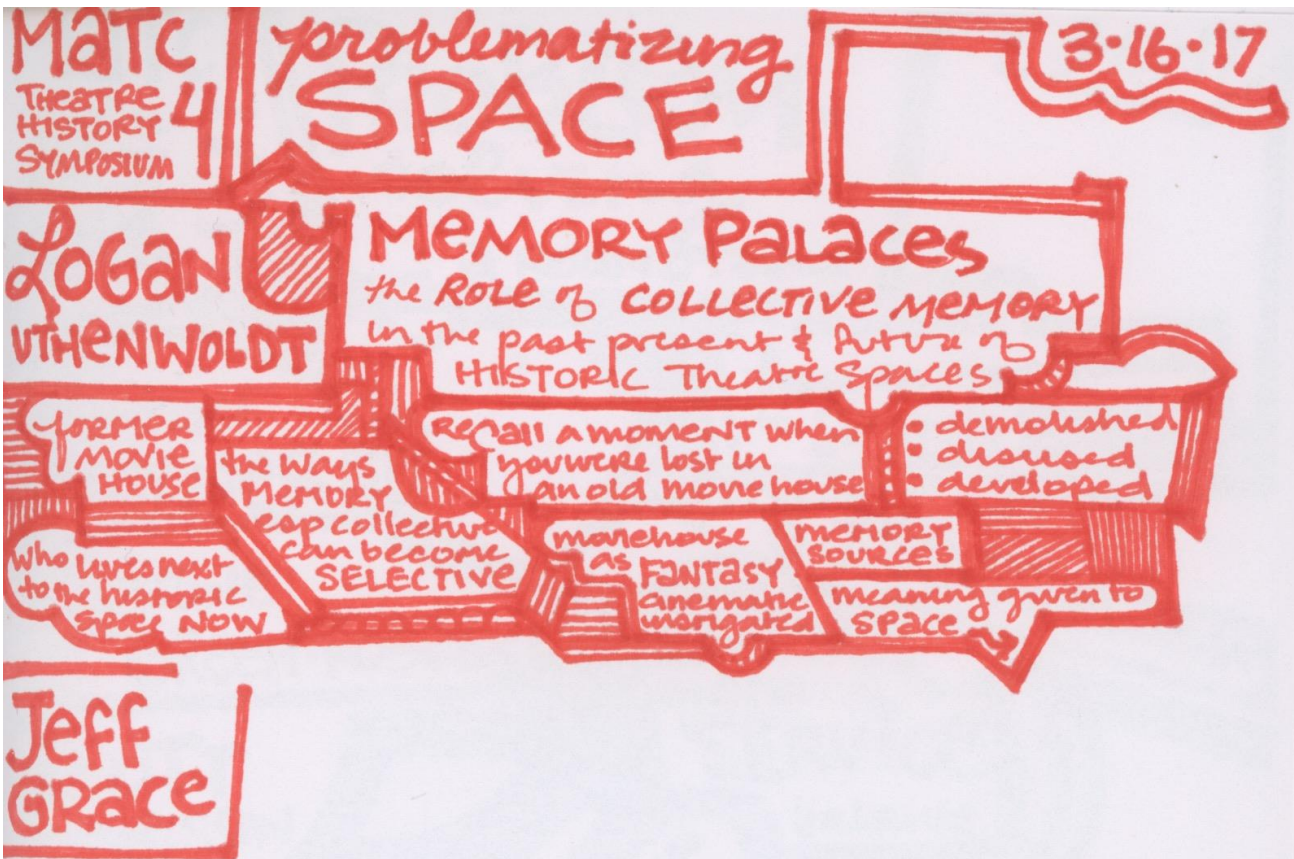 MATC
THEATRE
HISTORY 4
SYMPOSIUM
problematizing
SPACE
3·16·17
LOGAN
UTHENWOLDT
MEMORY PALACES
the ROLE of COLLECTIVE MEMORY
in the past present & future of
HISTORIC Theatre Spaces
former
MOVIE
HOUSE
the ways
MEMORY
esp collective
can become
SELECTIVE
Recall a moment when
you were lost in
an old movie house
• demolished
• disused
• developed
who lives next
to the historic
space NOW
moviehouse
as FANTASY
cinematic
MEMORY
SOURCES
meaning given to
SPACE
Jeff
GRACE